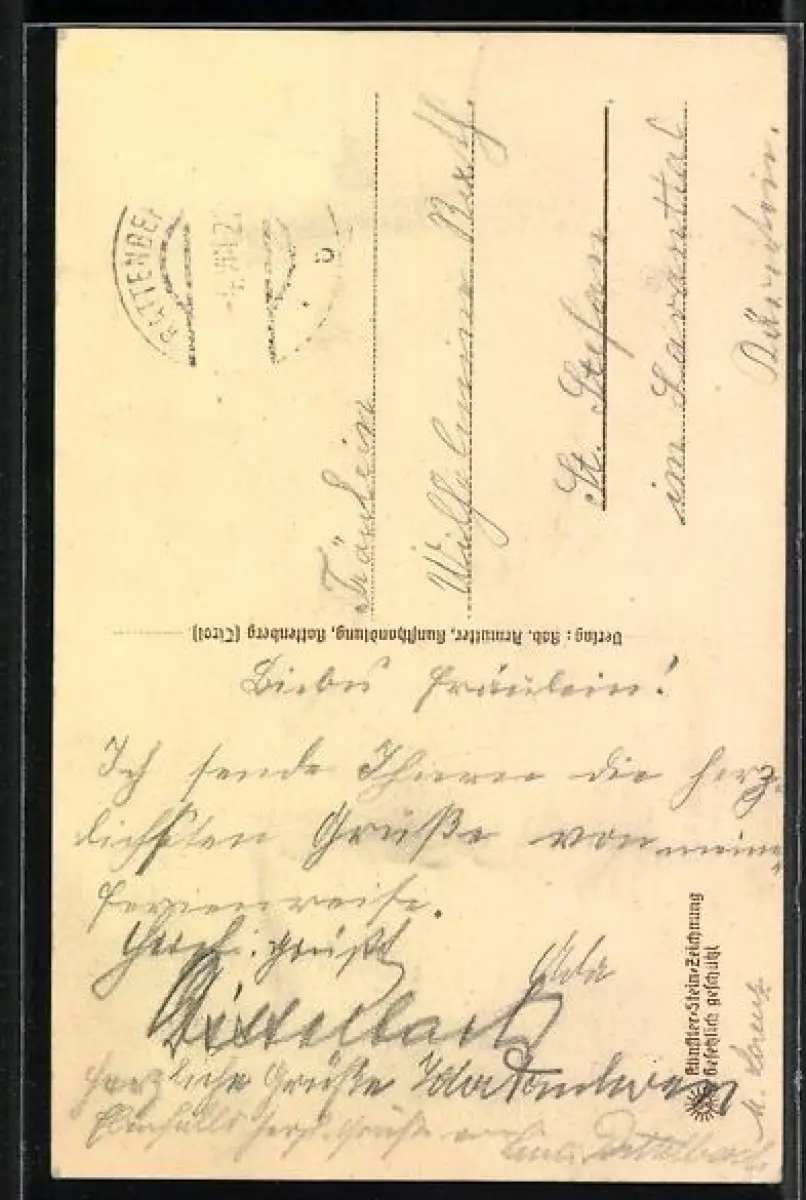 RATTENBE
Fräulein
Wilhelmine
St. Stefan
im Lavanttal
Kärnten.
Verlag: Rob. Armutter, Kunsthandlung, Rattenberg (Tirol)
Liebes Fräulein!
Ich sende Ihnen die herz-
lichsten Grüße von meiner
Ferienreise.
Herzl. grüßt
Dittelbach
Herzliche Grüße
Ebenfalls herzl. Grüße
Dittelbach
Künstler-Stein-Zeichnung
Gesetzlich geschützt